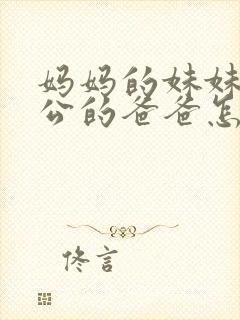 妈妈的妹妹
公的爸爸怎
佟言